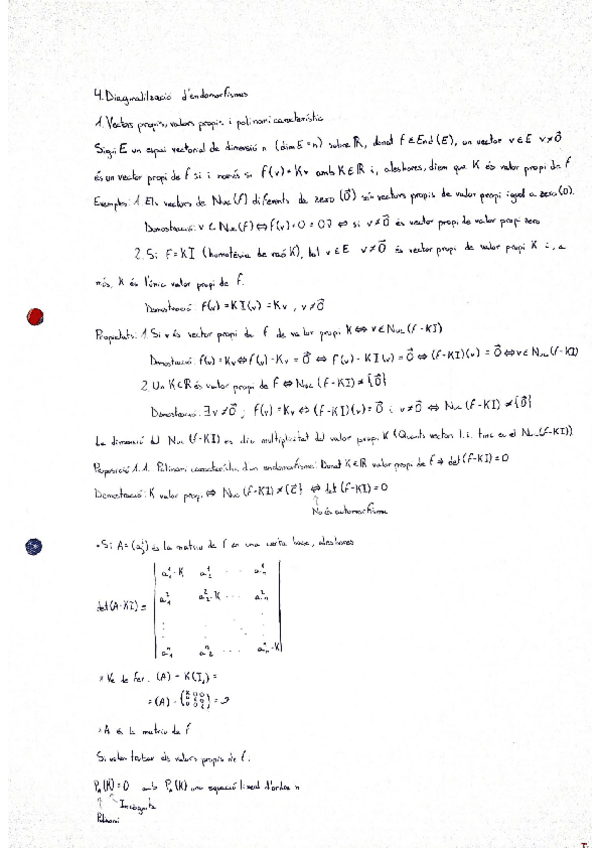 4. Diagonalització d'endomorfismes
1. Vectors propis, valors propis i polinomi característic
Sigui E un espai vectorial de dimensió n (dim E = n) sobre ℝ, donat f ∈ End(E), un vector v ∈ E v≠0⃗
és un vector propi de f si i només si f(v) = Kv amb K∈ℝ i, aleshores, diem que K és valor propi de f
Exemples: 1. Els vectors de Nuc(f) diferents de zero (0⃗) són vectors propis de valor propi igual a zero (0).
Demostració: v ∈ Nuc(f) ⇔ f(v) = 0 = 0v⃗ ⇔ si v≠0⃗ és vector propi de valor propi zero
2. Si f=KI (homotècia de raó K), tot v∈E v≠0⃗ és vector propi de valor propi K i, a
més, K és l'únic valor propi de f.
Demostració f(v) = KI(v) = Kv, v≠0⃗
Propietats: 1. Si v és vector propi de f de valor propi K ⇔ v∈Nuc(f-KI)
Demostració: f(v)=Kv ⇔ f(v)-Kv = 0⃗ ⇔ f(v)-KI(v) = 0⃗ ⇔ (f-KI)(v) = 0⃗ ⇔ v∈Nuc(f-KI)
2. Un K∈ℝ és valor propi de f ⇔ Nuc(f-KI) ≠ {0⃗}
Demostració: ∃v≠0⃗; f(v)=Kv ⇔ (f-KI)(v)=0⃗ i v≠0⃗ ⇔ Nuc(f-KI) ≠ {0⃗}
La dimensió del Nuc(f-KI) es diu multiplicitat del valor propi K (Quants vectors l.i. tinc en el Nuc(f-KI))
Proposició 1.1. Polinomi característic d'un endomorfisme: Donat K∈ℝ valor propi de f ⇔ det(f-KI)=0
Demostració: K valor propi ⇔ Nuc(f-KI) ≠ {0⃗} ⇔ det(f-KI)=0
No és automorfisme
• Si A=(aʲᵢ) és la matriu de f en una certa base, aleshores
det(A-KI) =
a¹₁-K a¹₂ ... a¹ₙ
a²₁ a²₂-K ... a²ₙ
aⁿ₁ aⁿ₂ ... aⁿₙ-K
Ve de fer: (A) - K(I) =
A és la matriu de f
Si volem trobar els valors propis de f.
Pₙ(K)=0 amb Pₙ(K) una equació lineal d'ordre n
Incògnita
Polinomi